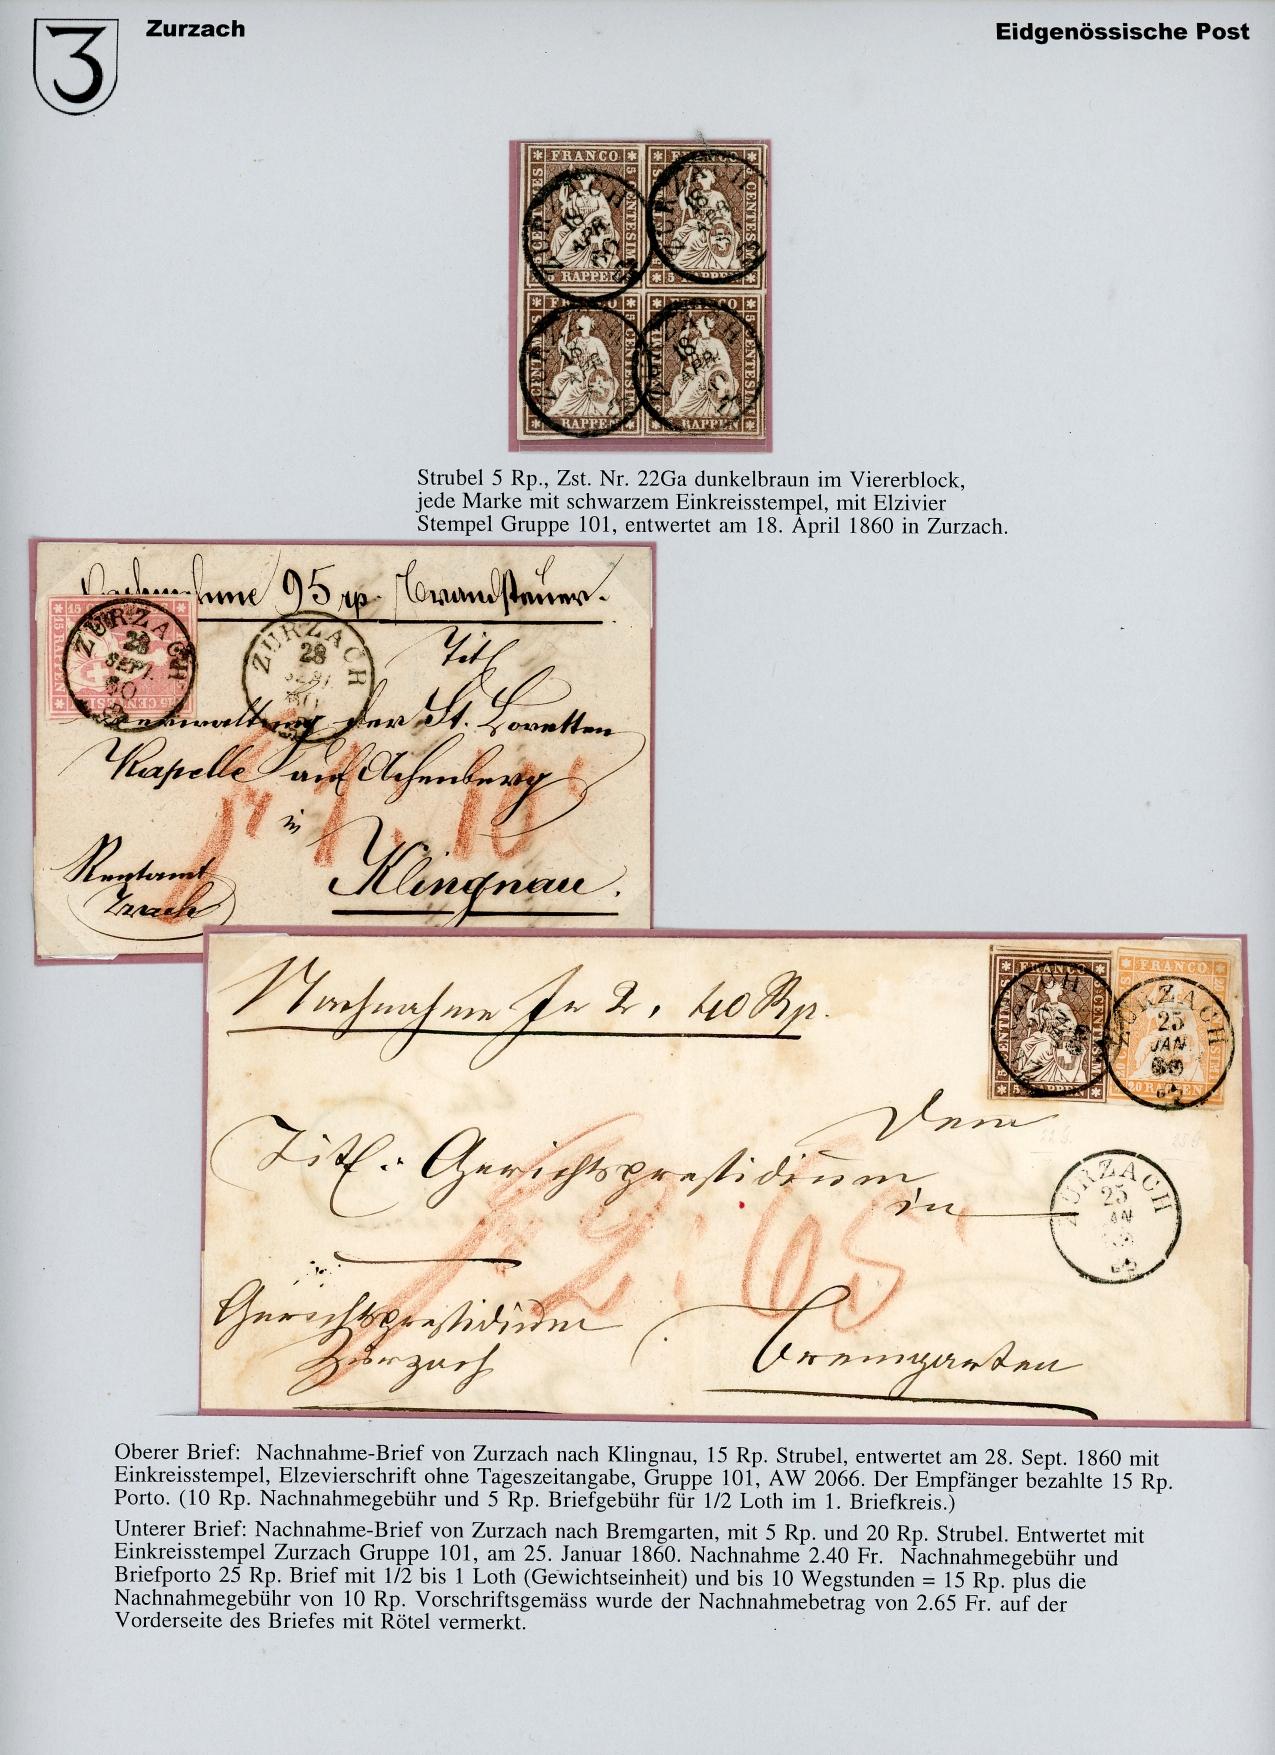 3
Zurzach
Eidgenössische Post
FRANCO
5 RAPPEN
ZURZACH
18
APR
Strubel 5 Rp., Zst. Nr. 22Ga dunkelbraun im Viererblock,
jede Marke mit schwarzem Einkreisstempel, mit Elzivier
Stempel Gruppe 101, entwertet am 18. April 1860 in Zurzach.
Nachnahme 95 rp. Brandsteuer.
ZURZACH
28
SEPT.
60
ZURZACH
28
Titl
Verwaltung der St. Loretten
Kapelle auf Achenberg
in
Klingnau.
Rentamt
Zrzach
fr 1.10
Nachnahme Fr 2. 40 Rp.
FRANCO
5 RAPPEN
FRANCO
20 RAPPEN
ZURZACH
25
JAN
60
Dem
Titl. Gerichtspresidium
in
ZURZACH
25
JAN
fr 2.65
Gerichtspresidium
Zurzach
Bremgarten
Oberer Brief:  Nachnahme-Brief von Zurzach nach Klingnau, 15 Rp. Strubel, entwertet am 28. Sept. 1860 mit
Einkreisstempel, Elzevierschrift ohne Tageszeitangabe, Gruppe 101, AW 2066. Der Empfänger bezahlte 15 Rp.
Porto. (10 Rp. Nachnahmegebühr und 5 Rp. Briefgebühr für 1/2 Loth im 1. Briefkreis.)
Unterer Brief: Nachnahme-Brief von Zurzach nach Bremgarten, mit 5 Rp. und 20 Rp. Strubel. Entwertet mit
Einkreisstempel Zurzach Gruppe 101, am 25. Januar 1860. Nachnahme 2.40 Fr.  Nachnahmegebühr und
Briefporto 25 Rp. Brief mit 1/2 bis 1 Loth (Gewichtseinheit) und bis 10 Wegstunden = 15 Rp. plus die
Nachnahmegebühr von 10 Rp. Vorschriftsgemäss wurde der Nachnahmebetrag von 2.65 Fr. auf der
Vorderseite des Briefes mit Rötel vermerkt.